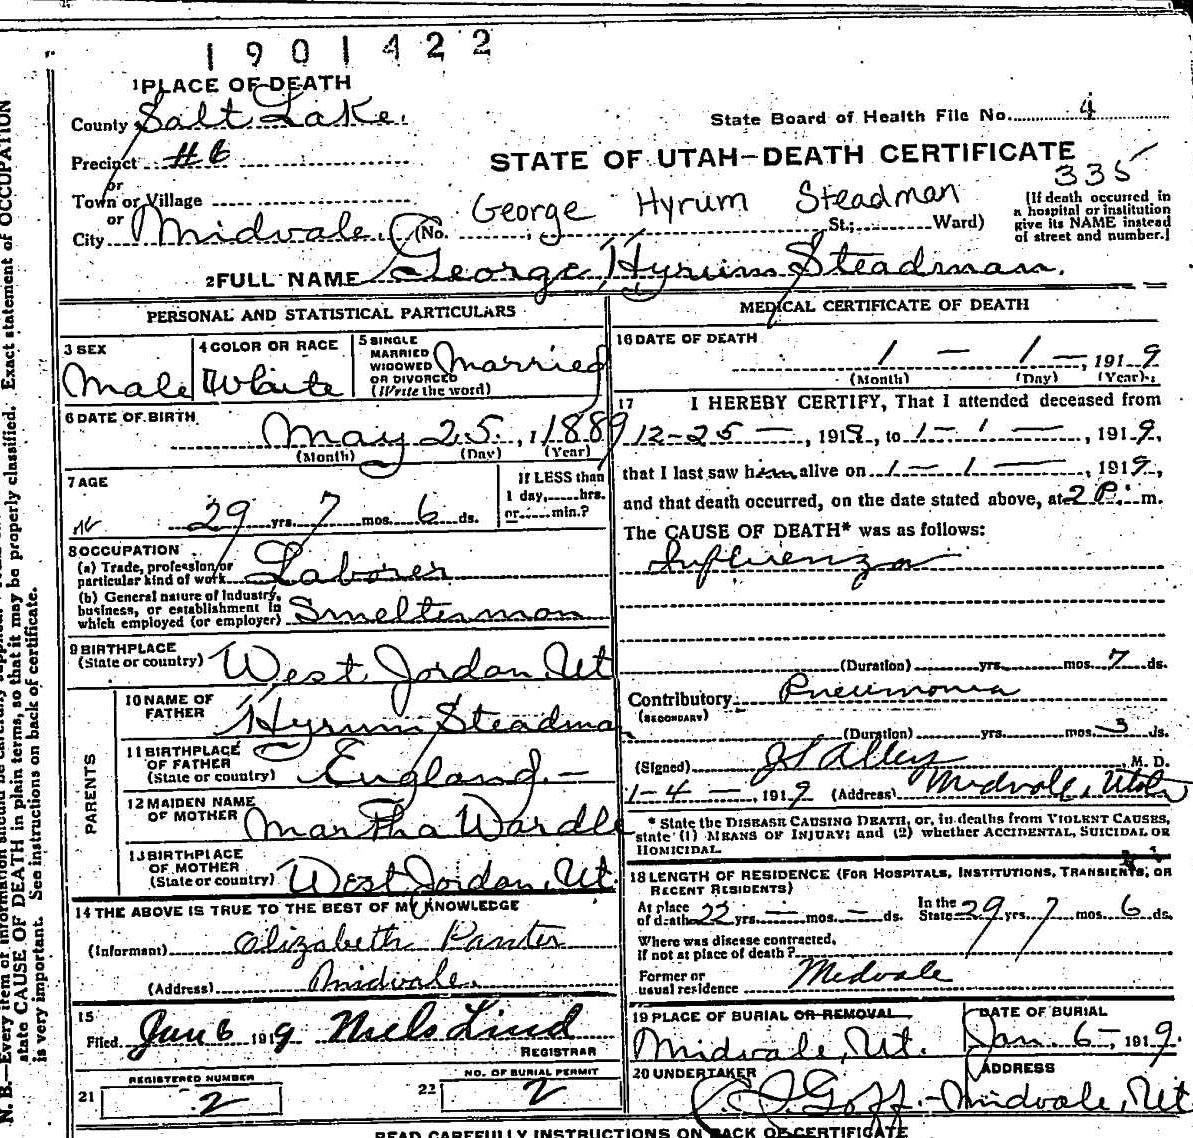 1901422
1 PLACE OF DEATH
County Salt Lake.
State Board of Health File No. 4
Precinct #6
STATE OF UTAH—DEATH CERTIFICATE
335
or
Town or Village
or
City Midvale (No. St.; Ward)
George Hyrum Steadman
[If death occurred in
a hospital or institution
give its NAME instead
of street and number.]
2 FULL NAME George Hyrum Steadman.
PERSONAL AND STATISTICAL PARTICULARS
3 SEX
Male
4 COLOR OR RACE
White
5 SINGLE
MARRIED
WIDOWED
OR DIVORCED
(Write the word)
Married
6 DATE OF BIRTH
May 25, 1889
(Month) (Day) (Year)
7 AGE
29 yrs. 7 mos. 6 ds.
If LESS than
1 day, hrs.
or min.?
8 OCCUPATION
(a) Trade, profession or
particular kind of work Laborer
(b) General nature of Industry,
business, or establishment in
which employed (or employer) Smelterman
9 BIRTHPLACE
(State or country) West Jordan, Ut
PARENTS
10 NAME OF
FATHER Hyrum Steadman
11 BIRTHPLACE
OF FATHER
(State or country) England.—
12 MAIDEN NAME
OF MOTHER Martha Wardle
13 BIRTHPLACE
OF MOTHER
(State or country) West Jordan, Ut.
14 THE ABOVE IS TRUE TO THE BEST OF MY KNOWLEDGE
(Informant) Elizabeth Panter
(Address) Midvale.
15
Filed Jan 6 1919 Niels Lind
REGISTRAR
REGISTERED NUMBER
21 2
NO. OF BURIAL PERMIT
22 2
MEDICAL CERTIFICATE OF DEATH
16 DATE OF DEATH
1 — 1 —, 1919
(Month) (Day) (Year)
17 I HEREBY CERTIFY, That I attended deceased from
12-25 —, 1918, to 1 - 1 —, 1919,
that I last saw him alive on 1 — 1 —, 1919,
and that death occurred, on the date stated above, at 2 P. m.
The CAUSE OF DEATH* was as follows:
Influenza
(Duration) yrs. mos. 7 ds.
Contributory Pneumonia
(SECONDARY)
(Duration) yrs. mos. 3 ds.
(Signed) Alley M. D.
1-4 —, 1919 (Address) Midvale, Utah
* State the DISEASE CAUSING DEATH, or, in deaths from VIOLENT CAUSES,
state (1) MEANS OF INJURY; and (2) whether ACCIDENTAL, SUICIDAL OR
HOMICIDAL.
18 LENGTH OF RESIDENCE (FOR HOSPITALS, INSTITUTIONS, TRANSIENTS, OR
RECENT RESIDENTS)
At place
of death 22 yrs. — mos. — ds.
In the
State 29 yrs. 7 mos. 6 ds.
Where was disease contracted,
if not at place of death?
Former or
usual residence Midvale
19 PLACE OF BURIAL OR REMOVAL
Midvale, Ut.
DATE OF BURIAL
Jan. 6 —, 1919.
20 UNDERTAKER
Goff.
ADDRESS
Midvale, Ut.
READ CAREFULLY INSTRUCTIONS ON BACK OF CERTIFICATE
N. B.—Every item of information should be carefully Exact statement of OCCUPATION
state CAUSE OF DEATH in plain terms, so that it may be properly classified.
is very important. See instructions on back of certificate.